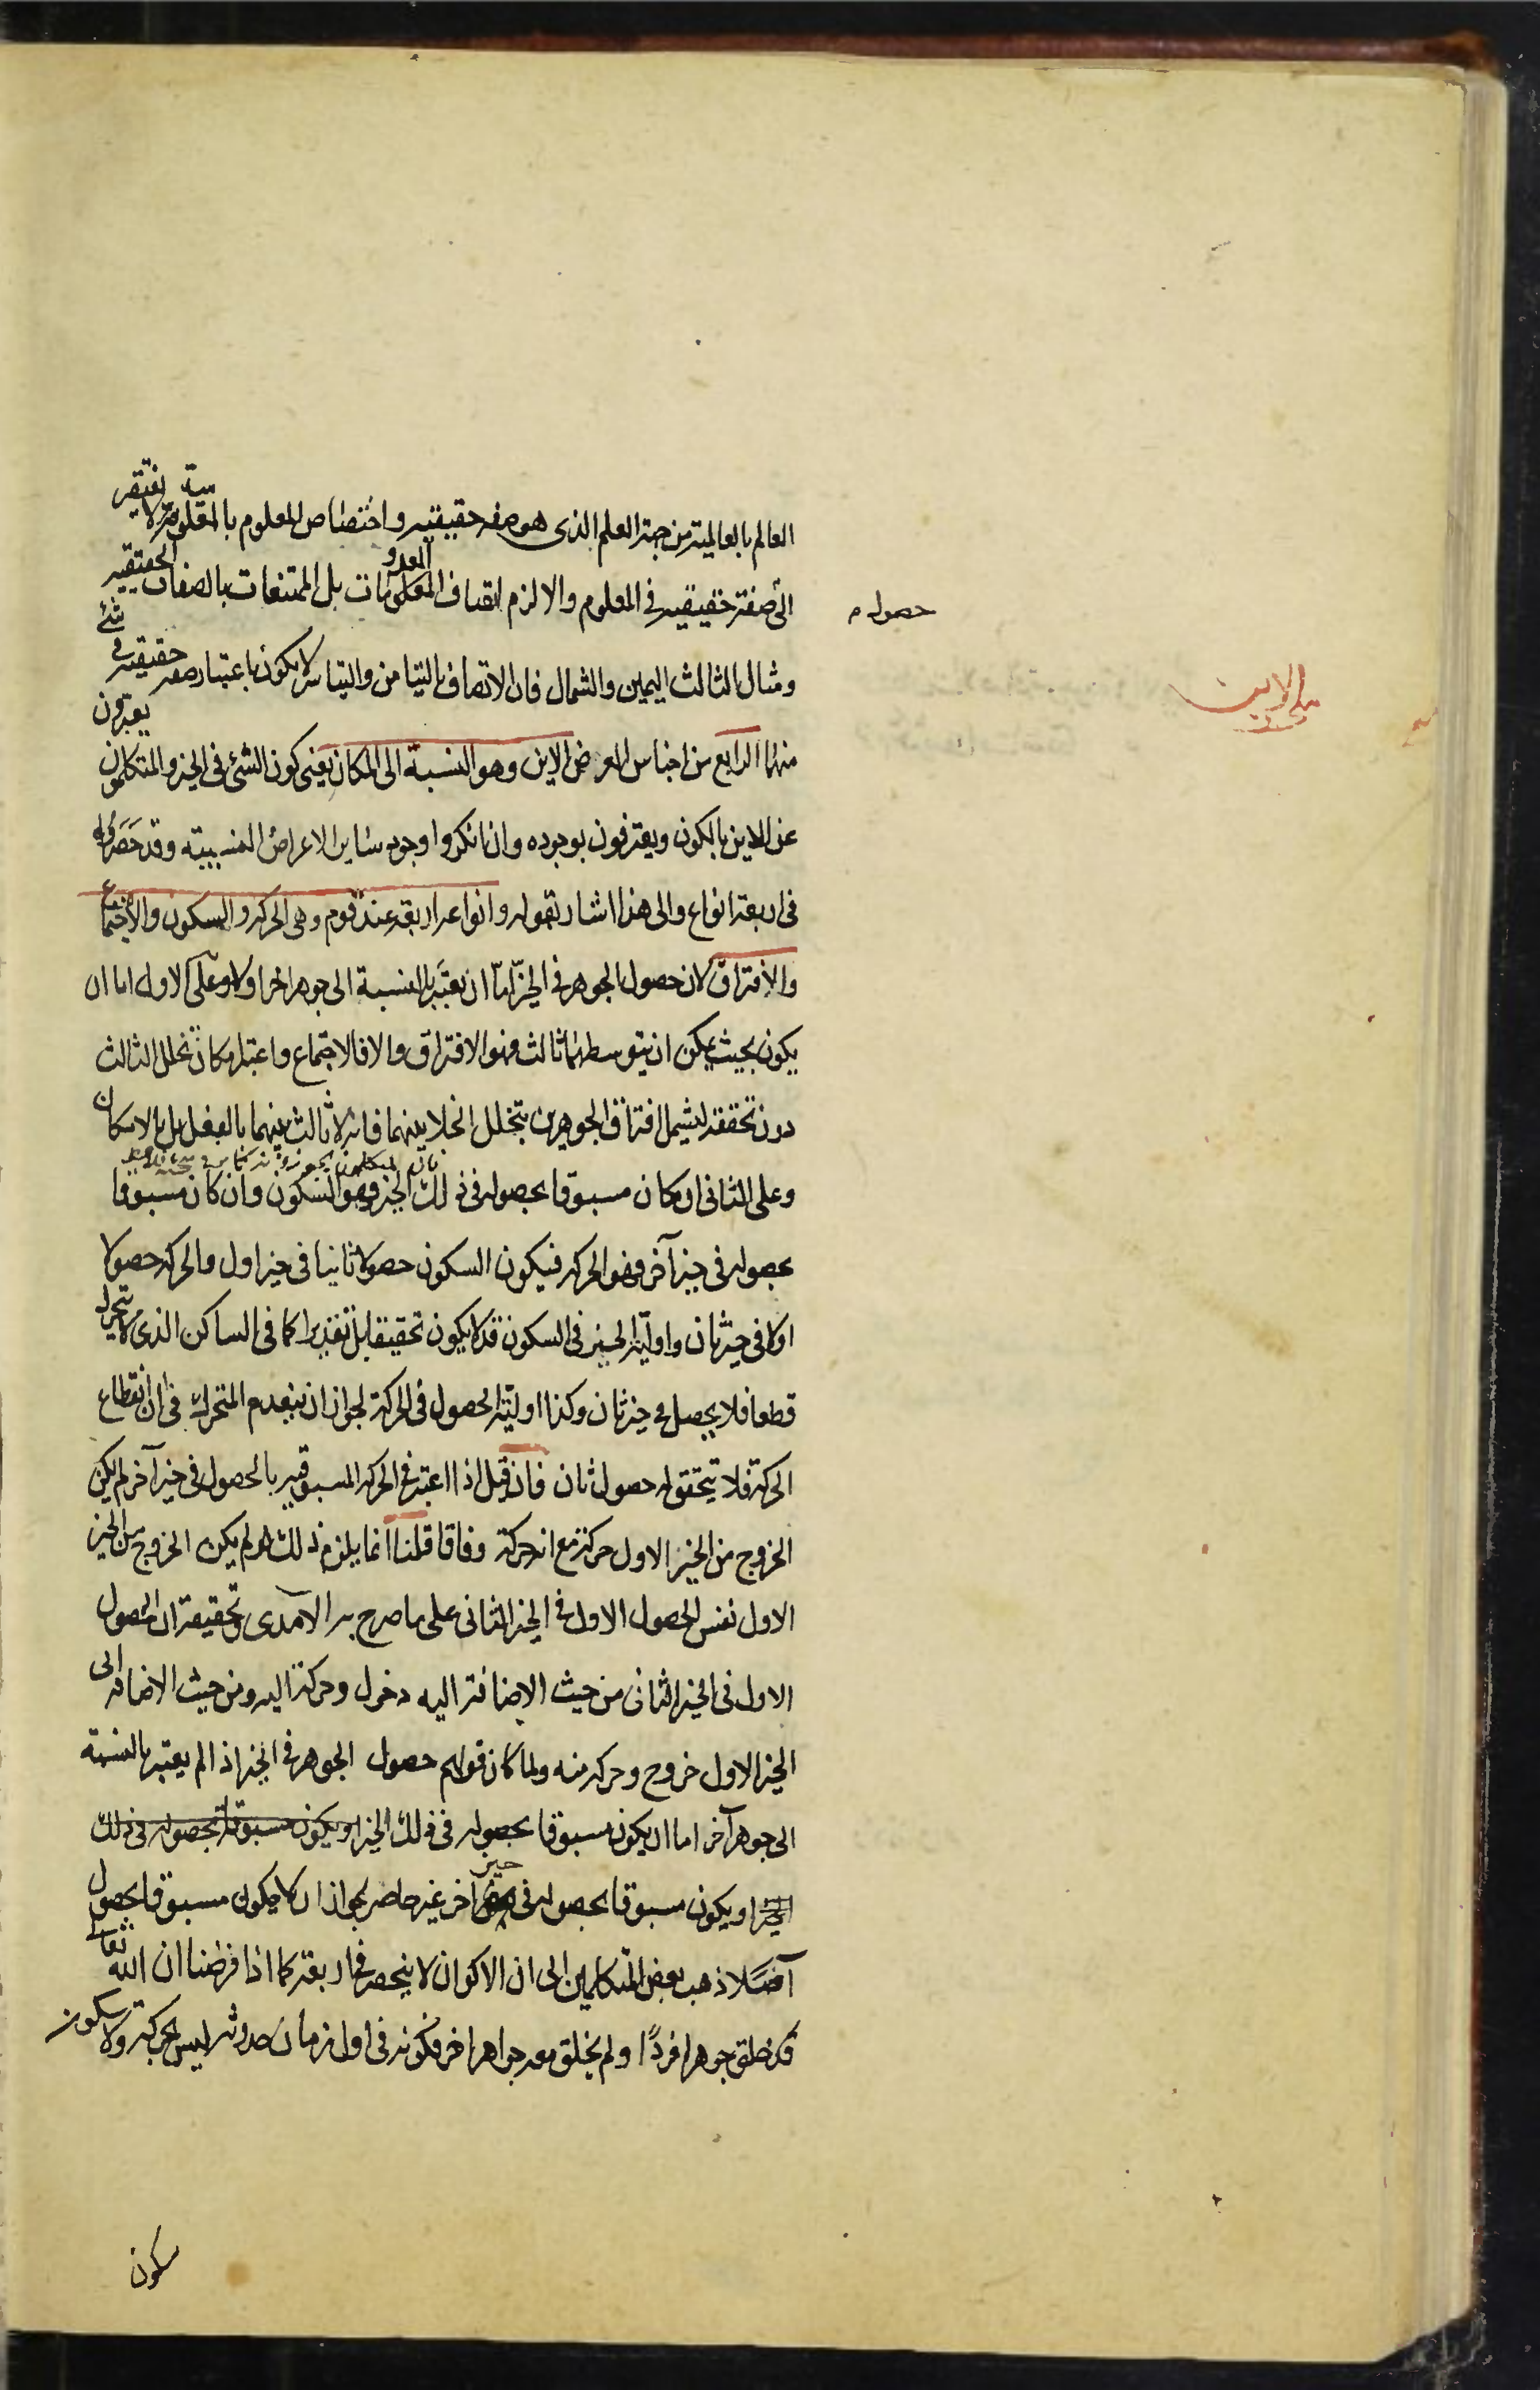 العالم بالعالمية من جهة العلم الذى هو صفة حقيقية واختصاص المعلوم بالمعلومية لا يفتقر
الى صفة حقيقية فى المعلوم والا لزم اتصاف المعدومات بل الممتنعات بالصفات الحقيقية
حصول م
ومثال الثالث اليمين والشمال فان الاتصاف بالتيامن والتياسر لا يكون باعتبار صفة حقيقية فى شئ
الاين
منهما الرابع من اجناس العرض الاين وهو النسبة الى المكان يعنى كون الشئ فى الحيز والمتكلمون يعبرون
عن الاين بالكون ويعترفون بوجوده وان انكروا وجود ساير الاعراض النسبية وقد حصروه
فى اربعة انواع والى هذا اشار بقوله وانواعه اربعة عند قوم وهى الحركة والسكون والاجتماع
والافتراق لان حصول الجوهر فى الحيز اما ان يعتبر بالنسبة الى جوهر اخر اولا وعلى الاول اما ان
يكون بحيث يمكن ان يتوسطهما ثالث فهو الافتراق والا فالاجتماع واعتبار مكان تخلل الثالث
دون تحققه ليشمل افتراق الجوهرين بتخلل الخلا بينهما فانه لا ثالث بينهما بالفعل بل بالامكان
وعلى الثانى ان كان مسبوقا بحصوله فى ذلك الحيز فهو السكون وان كان مسبوقا
بحصوله فى حيز آخر فهو الحركة فيكون السكون حصولا ثانيا فى حيز اول والحركة حصولا
اولا فى حيز ثان واولية الحيز فى السكون قد لا يكون تحقيقا بل تقديرا كما فى الساكن الذى لا يتحرك
قطعا فلا يحصل فى حيز ثان وكذا اولية الحصول فى الحركة لجواز ان ينعدم المتحرك فى ان انقطاع
الحركة فلا يتحقق له حصول ثان فان قيل اذا اعتبر فى الحركة المسبوقية بالحصول فى حيز آخر لم يكن
الخروج من الحيز الاول حركة مع انه حركة وفاقا قلنا انما يلزم ذلك لو لم يكن الخروج من الحيز
الاول نفس الحصول الاول فى الحيز الثانى على ما صرح به الآمدى وتحقيقه ان الحصول
الاول فى الحيز الثانى من حيث الاضافة اليه دخول وحركة اليه ومن حيث الاضافة الى
الحيز الاول خروج وحركة منه ولما كان قولهم حصول الجوهر فى الحيز اذا لم يعتبر بالنسبة
الى جوهر آخر اما ان يكون مسبوقا بحصوله فى ذلك الحيز او يكون مسبوقا بحصوله فى ذلك
الحيز او يكون مسبوقا بحصوله فى حيز اخر غير حاصر لجواز ان لا يكون مسبوقا بحصول
آخر اصلا ذهب بعض المتكلمين الى ان الاكوان لا ينحصر فى اربعة كما اذا فرضنا ان الله تعالى
قد خلق جوهرا فردًا ولم يخلق معه جواهر اخر فكونه فى اول زمان حدوثه ليس بحركة ولا سكون
سكون